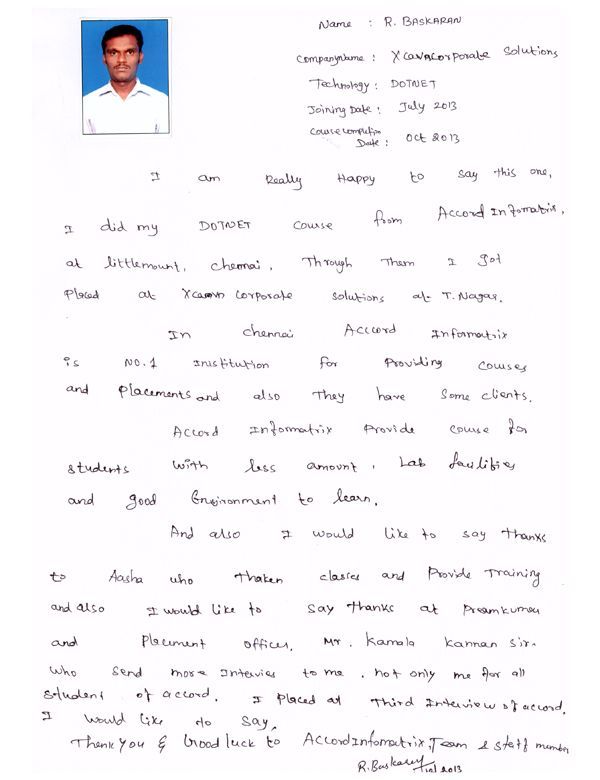 Name : R. BASKARAN
Companyname : Xcavacorporate Solutions
Technology : DOTNET
Joining Date : July 2013
Course completion
Date : Oct 2013
I am Really Happy to say this one,
I did my DOTNET course from Accord Infomatrix,
at littlemount, chennai, Through Them I got
Placed at Corporate solutions at T. Nagar.
In chennai Acccord Informatrix
is NO.1 Inistitution for Providing courses
and Placements and also They have Some clients.
Accord Infomatrix Provide course for
students with less amount, Lab facilities
and good Environment to learn.
And also I would like to say thanks
to Aasha who thaken classes and Provide Training
and also I would like to say thanks at Preamkumar
and Placement officer, Mr. Kamala kannan sir.
who send more Intervies to me, not only me for all
student of accord. I placed at Third Interview of accord.
I would like to say,
Thank you & Good luck to Accord Infomatrix, Team & staff member
R. Baskaran